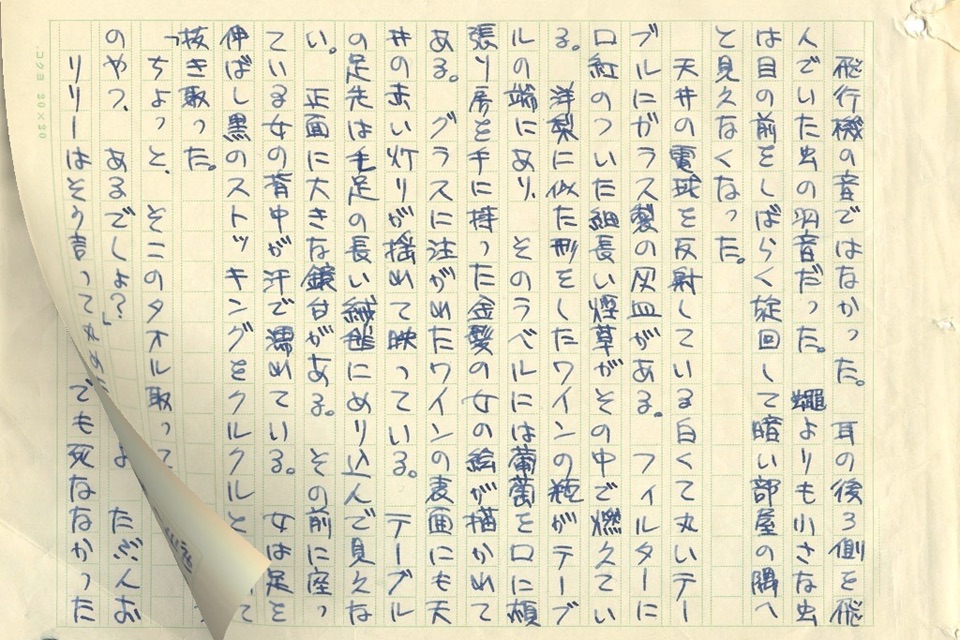 飛行機の音ではなかった。耳の後ろ側を飛
んでいた虫の羽音だった。蠅よりも小さな虫
は目の前をしばらく旋回して暗い部屋の隅へ
と見えなくなった。
天井の電球を反射している白くて丸いテー
ブルにガラス製の灰皿がある。フィルターに
口紅のついた細長い煙草がその中で燃えてい
る。洋梨に似た形をしたワインの瓶がテーブ
ルの端にあり、そのラベルには葡萄を口に頬
張り房を手に持った金髪の女の絵が描かれて
ある。グラスに注がれたワインの表面にも天
井の赤い灯りが揺れて映っている。テーブル
の足先は毛足の長い絨毯にめり込んで見えな
い。正面に大きな鏡台がある。その前に座っ
ている女の背中が汗で濡れている。女は足を
伸ばし黒のストッキングをクルクルと て
抜き取った。
「ちょっと、そこのタオル取って
のやつ、あるでしょ?」 よ たぶんお
リリーはそう言って丸め でも死ななかった
コクヨ 20×20